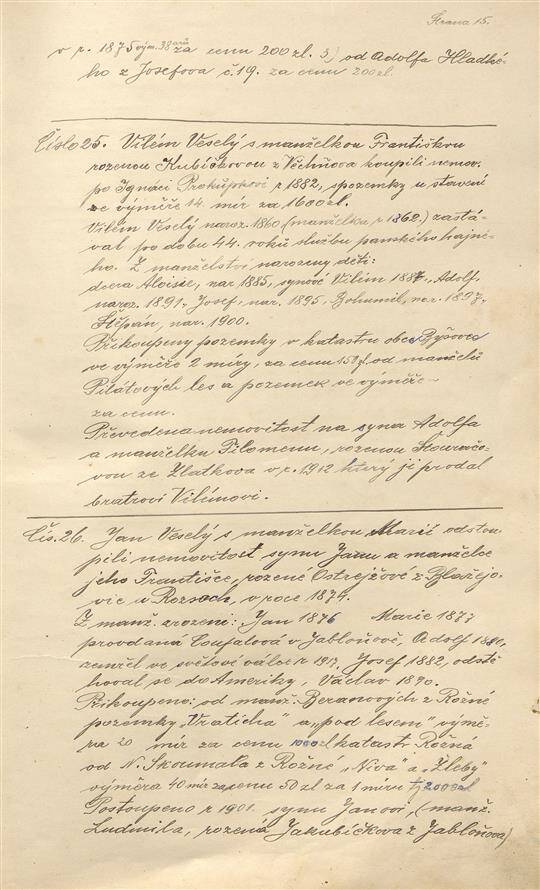 Strana 15.
v r. 1875 vým. 38 arů za cenu 200 zl. 3.) od Adolfa Hladké-
ho z Josefova č. 19. za cenu 200 zl.
Číslo 25. Vilém Veselý s manželkou Františkou
rozenou Kubíčkovou z Věchňova koupili nemov.
po Ignáci Prokůpkovi r 1882, s pozemky u stavení
ve výměře 14. mír za 1600 zl.
Vilém Veselý naroz. 1860 (manželka r 1862.) zastá-
val po dobu 44. roků službu panského hajné-
ho. Z manželství narozeny děti:
dcera Aloisie, nar. 1885, synové Vilém 1887., Adolf,
naroz. 1891., Josef, nar. 1895, Bohumil, nar. 1897,
Štěpán, nar. 1900.
Přikoupeny pozemky v katastru obce Byšovec
ve výměře 2 míry, za cenu 150 zl. od manželů
Pilátových les a pozemek ve výměře -
za cenu.
Převedena nemovitost na syna Adolfa
a manželku Filomenu, rozenou
vou ze Zlatkova v r. 1912 který ji prodal
bratrovi Vilémovi.
Čís. 26. Jan Veselý s manželkou Marií odstou-
pili nemovitost synu Janu a manželce
jeho Františce, rozené Ostrejžové z Blažejo-
vic u Rozsoch, v roce 1874.
Z manž. zrozeni: Jan 1876 Marie 1877
provdaná Coufalová v Jabloňově, Adolf 1880,
zemřel ve světové válce r 1917, Josef 1882, odstě-
hoval se do Ameriky, Václav 1890.
Přikoupeno: od manž. Beranových z Rožné
pozemky „Vraticha" a „pod lesem" výmě-
ra 20 mír za cenu 1000 zl katastr Rožná
od N. Skoumala z Rožné „Niva" a „Žleby"
výměra 40 mír za cenu 50 zl za 1 míru tj 2000 zl
Postoupeno r 1901. synu Janovi, (manž.
Ludmila, rozená Jakubíčkova z Jabloňova)